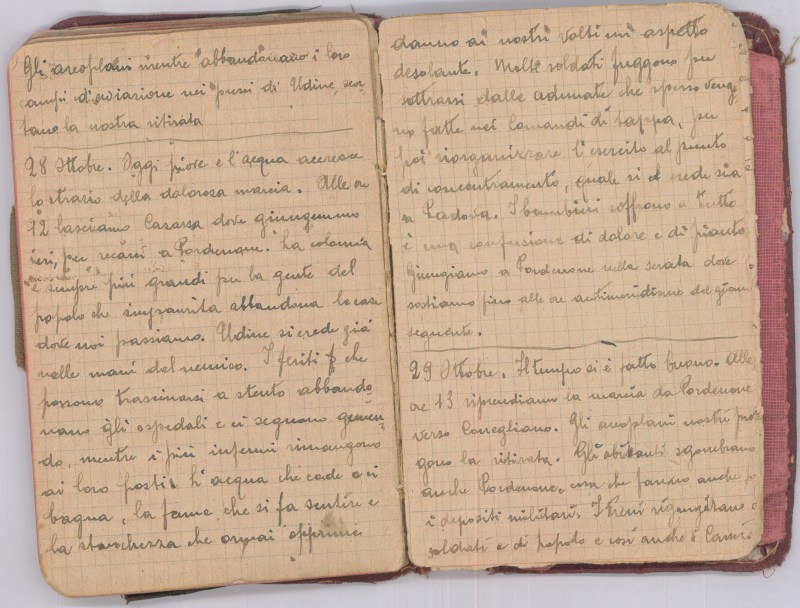 Gli areoplani mentre abbandonano i loro
campi d'aviazione nei pressi di Udine, scor
tano la nostra ritirata
28 Ottobre. Oggi piove e l'acqua accresce
lo strazio della dolorosa marcia. Alle ore
12 lasciamo Casarsa dove giungemmo
ieri, per recarci a Pordenone. La colonna
è sempre più grandi per la gente del
popolo che impaurita abbandona le case
dove noi passiamo. Udine si crede già
nelle mani del nemico. I feriti che
possono trascinarsi a stento abbando
nano gli ospedali e ci seguono gemen
do, mentre i più infermi rimangono
ai loro posti. L'acqua che cade e ci
bagna, la fame che si fa sentire e
la stanchezza che ormai opprime
danno ai nostri volti un aspetto
desolante. Molti soldati fuggono per
sottrarsi dalle adunate che spesso vengo
no fatte nei Comandi di tappa, per
poi riorganizzare l'esercito al punto
di concentramento, quale si crede sia
a Padova. I bambini soffrono e tutto
è una confusione di dolore e di pianto
Giungiamo a Pordenone nella serata dove
sostiamo fino alle ore antimeridiane del giorno
seguente.
29 Ottobre. Il tempo si è fatto buono. Alle
ore 13 riprendiamo la marcia da Pordenone
verso Conegliano. Gli areoplani nostri proteg
gono la ritirata. Gli abitanti sgombrano
anche Pordenone, cosa che fanno anche
i depositi militari. I treni rigurgitano di
soldati e di popolo e così anche i Camion